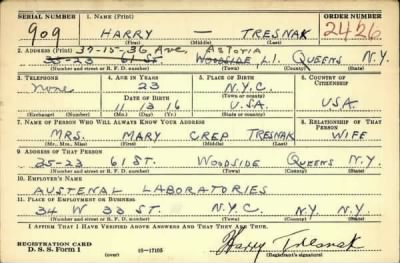 SERIAL NUMBER 1. NAME (Print) ORDER NUMBER
909 HARRY — TRESNAK 2426
(First) (Middle) (Last)
2. ADDRESS (Print) 37-15-36 Ave, Astoria
35-23 61 ST. WOODSIDE, L.I. QUEENS N.Y.
(Number and street or R. F. D. number) (Town) (County) (State)
3. TELEPHONE 4. AGE IN YEARS 5. PLACE OF BIRTH 6. COUNTRY OF CITIZENSHIP
None 23 N.Y.C.
DATE OF BIRTH (Town or county)
11 13 16 U.S.A. USA
(Exchange) (Number) (Mo.) (Day) (Yr.) (State or country)
7. NAME OF PERSON WHO WILL ALWAYS KNOW YOUR ADDRESS 8. RELATIONSHIP OF THAT PERSON
MRS. MARY CREP TRESNAK WIFE
(Mr., Mrs., Miss) (First) (Middle) (Last)
9. ADDRESS OF THAT PERSON
35-23 61 ST. WOODSIDE QUEENS N.Y.
(Number and street or R. F. D. number) (Town) (County) (State)
10. EMPLOYER'S NAME
AUSTENAL LABORATORIES
11. PLACE OF EMPLOYMENT OR BUSINESS
34 W 33 ST. N.Y.C. N.Y. N.Y.
(Number and street or R. F. D. number) (Town) (County) (State)
I AFFIRM THAT I HAVE VERIFIED ABOVE ANSWERS AND THAT THEY ARE TRUE.
REGISTRATION CARD
D. S. S. Form 1 (over) 16-17105 Harry Tresnak
(Registrant's signature)